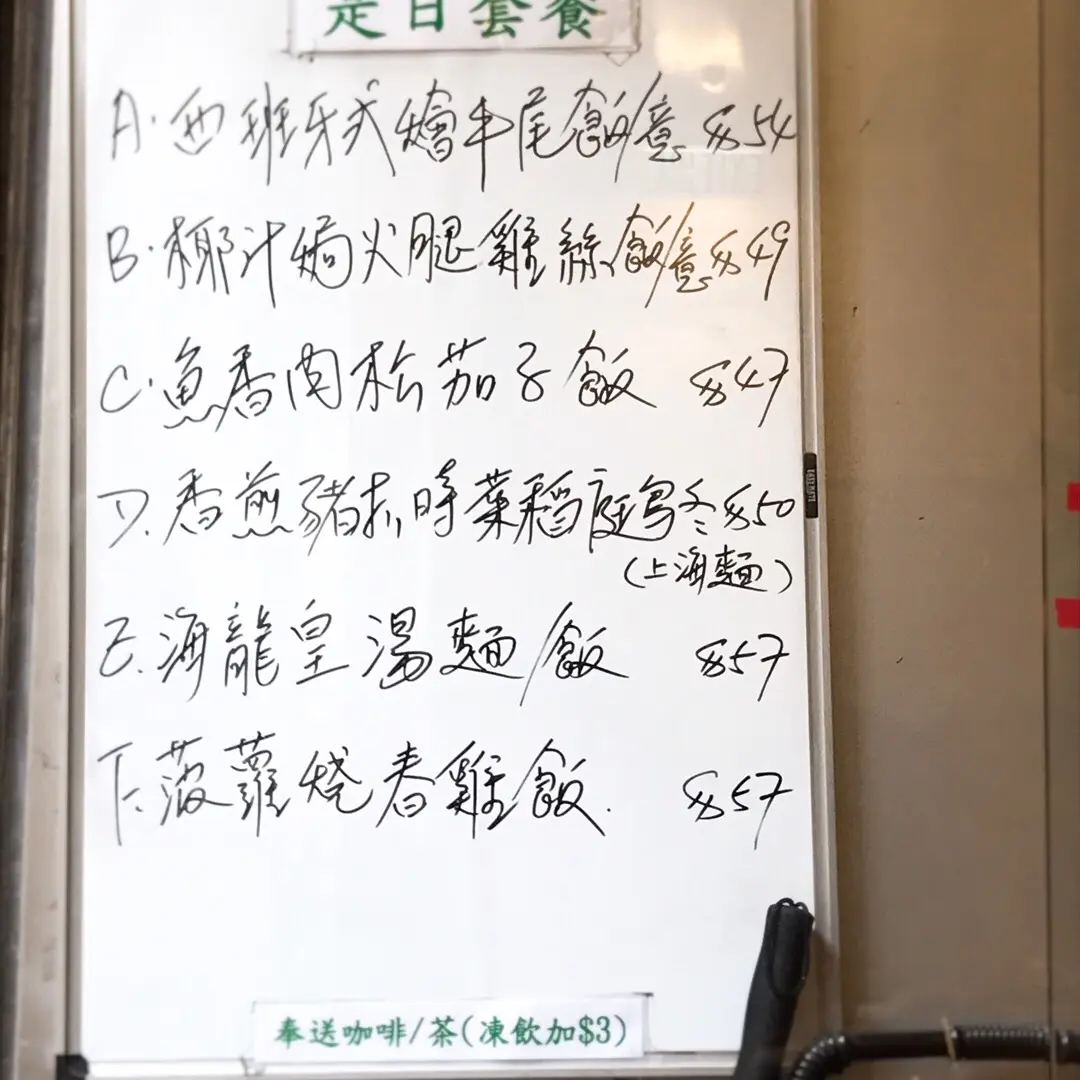 是日套餐
A.西班牙式燴牛尾飯/意 $54
B.椰汁焗火腿雞絲飯/意$49
C.魚香肉松茄子飯 $47
D.香煎豬扒時菜稻庭烏冬$50
(上海麵)
E.海龍皇湯麵/飯 $57
F.菠蘿燒春雞飯. $57
奉送咖啡/茶(凍飲加$3)